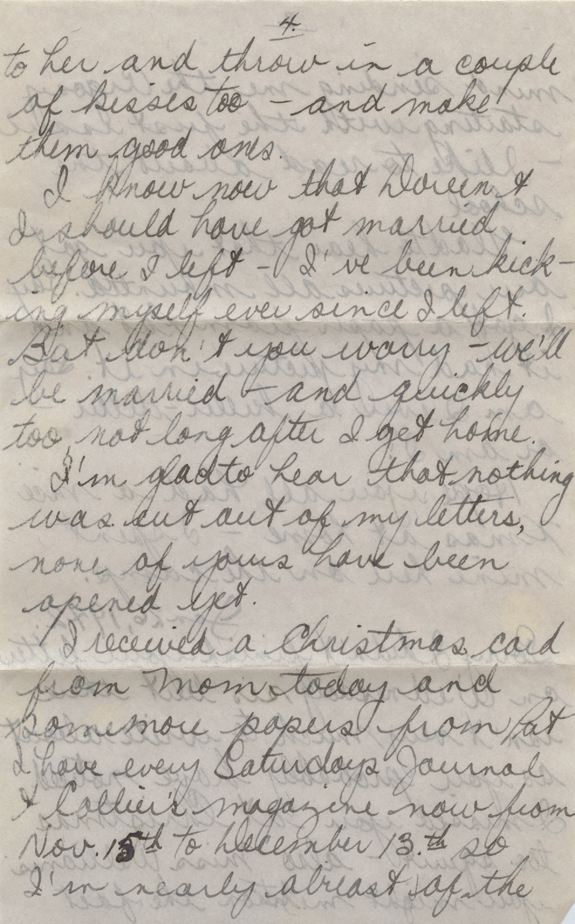 4.
to her and throw in a couple
of kisses too - and make
them good ones.
I know now that Doreen &
I should have got married
before I left - I've been kick-
ing myself ever since I left.
But don't you worry - we'll
be married - and quickly
too, not long after I get home.
I'm glad to hear that nothing
was cut out of my letters,
none of yours have been
opened yet.
I received a Christmas card
from Mom today and
some more papers from Pat
I have every Saturdays Journal
& Collier's magazine now from
Nov. 15th to December 13.th so
I'm nearly abreast of the